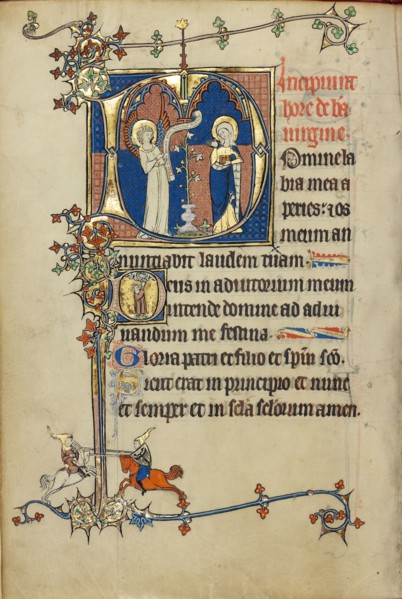 Incipiunt
hore de bā
uirgine
Domine la
bia mea a
peries: ⁊ os
meum an
nuntiabit laudem tuam.
Deus in adiutorium meum
intende domine ad adiu
uandum me festina.
Gloria patri et filio et spūi sc̄o.
Sicut erat in principio et nunc
et semper et in sc̄la sc̄lorum amen.